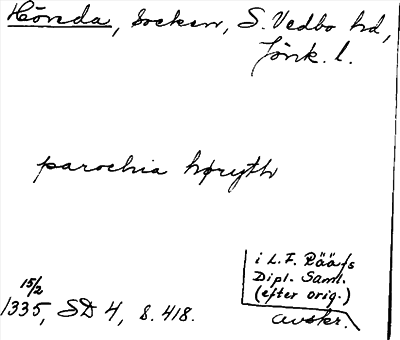 Höreda, socken, S. Vedbo hd,
Jönk. l.
parochia høryth
i L. F. Rääfs
Dipl. Saml.
(efter orig.)
avskr.
15/2
1335, SD 4, s. 418.